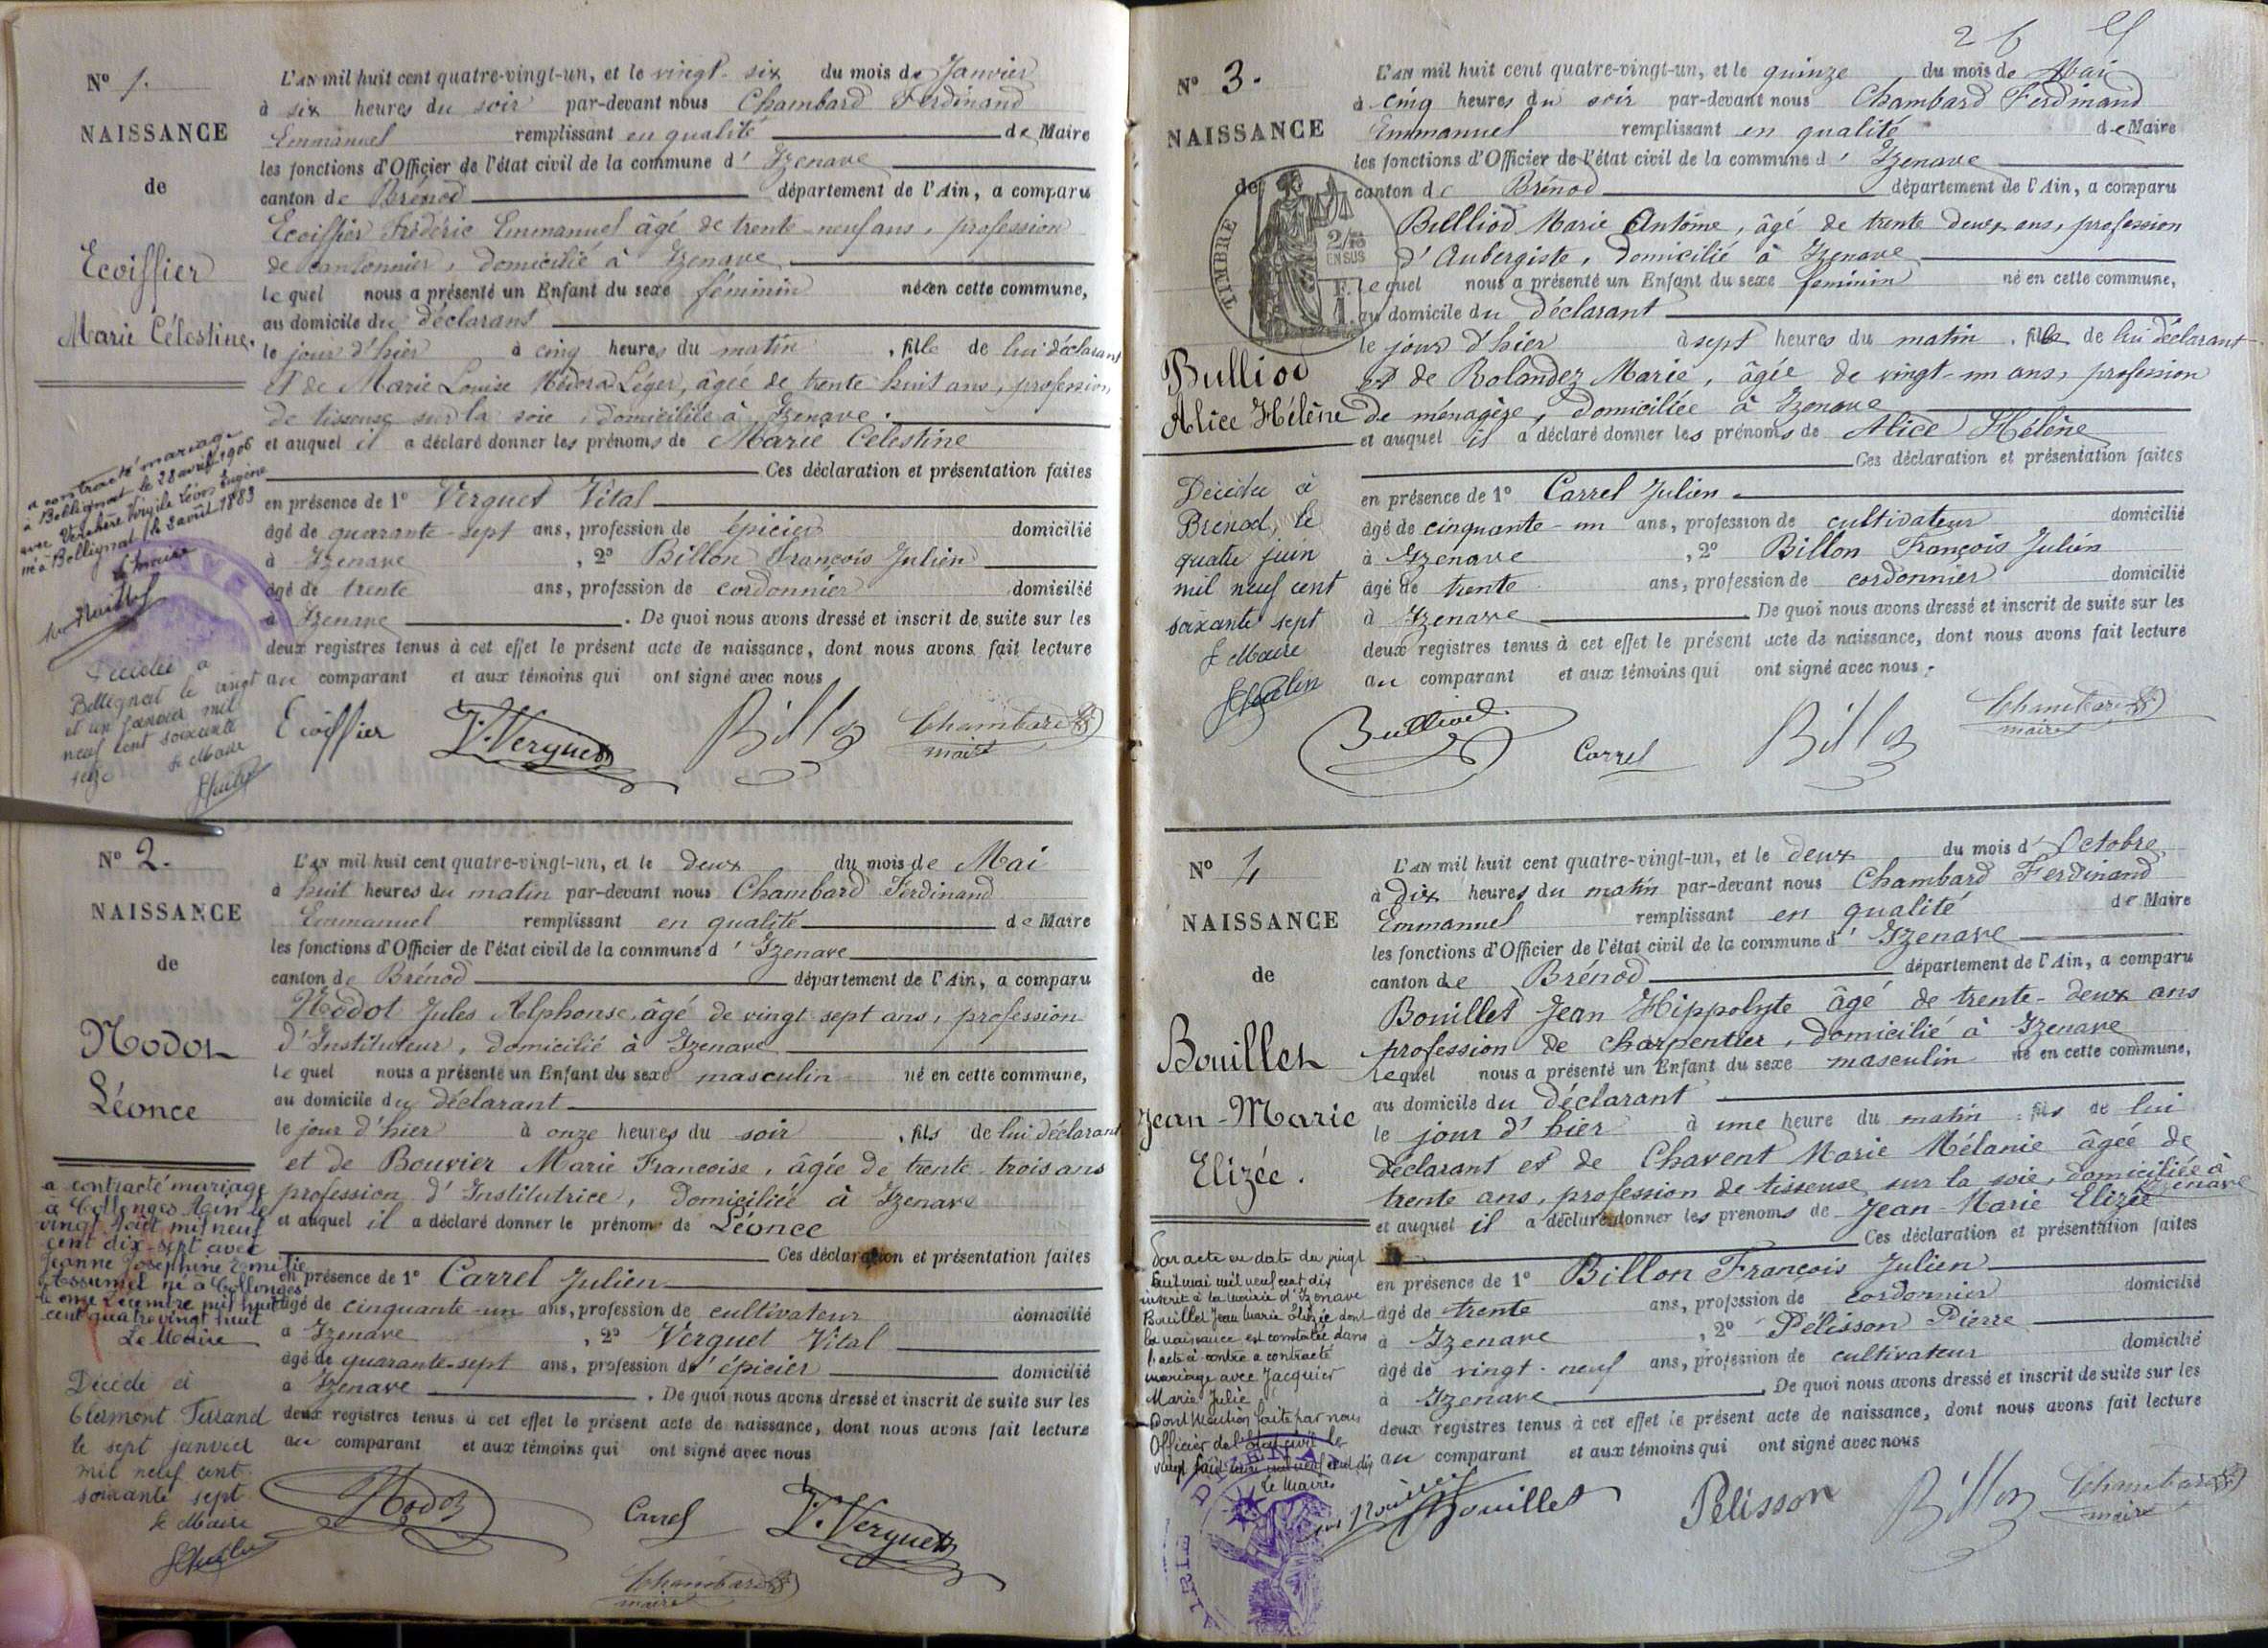 N° 1.
NAISSANCE
de
Ecoiffier
Marie Célestine.
L'AN mil huit cent quatre-vingt-un, et le vingt-six du mois de Janvier
à six heures du soir par-devant nous Chambard Ferdinand
Emmanuel remplissant en qualité de Maire
les fonctions d'Officier de l'état civil de la commune d'Izenave
canton de Brénod département de l'Ain, a comparu
Ecoiffier Frédéric Emmanuel âgé de trente-neuf ans, profession
de cantonnier, domicilié à Izenave
lequel nous a présenté un Enfant du sexe féminin née en cette commune,
au domicile du déclarant
le jour d'hier à cinq heures du matin, fille de lui déclarant
et de Marie Louise Léger, âgée de trente huit ans, profession
de tisseuse sur la soie, domiciliée à Izenave.
et auquel il a déclaré donner les prénoms de Marie Célestine
Ces déclaration et présentation faites
en présence de 1° Verguet Vital
âgé de quarante-sept ans, profession de épicier domicilié
à Izenave, 2° Billon François Julien
âgé de trente ans, profession de cordonnier domicilié
à Izenave. De quoi nous avons dressé et inscrit de suite sur les
deux registres tenus à cet effet le présent acte de naissance, dont nous avons fait lecture
au comparant et aux témoins qui ont signé avec nous
a contracté mariage
à Bellignat le 28 avril 1906
avec Verchère Virgile Léon Eugène
né à Bellignat le 2 avril 1883
Le Maire
Décédée à
Bellignat le vingt
et un janvier mil
neuf cent soixante
seize Le Maire
Ecoiffier V. Verguet Billon Chambard
maire
N° 2.
NAISSANCE
de
Nodot
Léonce
L'AN mil huit cent quatre-vingt-un, et le deux du mois de Mai
à huit heures du matin par-devant nous Chambard Ferdinand
Emmanuel remplissant en qualité de Maire
les fonctions d'Officier de l'état civil de la commune d'Izenave
canton de Brénod département de l'Ain, a comparu
Nodot Jules Alphonse, âgé de vingt sept ans, profession
d'Instituteur, domicilié à Izenave
lequel nous a présenté un Enfant du sexe masculin né en cette commune,
au domicile du déclarant
le jour d'hier à onze heures du soir, fils de lui déclarant
et de Bouvier Marie Françoise, âgée de trente-trois ans
profession d'Institutrice, domiciliée à Izenave
et auquel il a déclaré donner le prénom de Léonce
Ces déclaration et présentation faites
en présence de 1° Carrel Julien
âgé de cinquante-un ans, profession de cultivateur domicilié
à Izenave, 2° Verguet Vital
âgé de quarante-sept ans, profession d'épicier domicilié
à Izenave. De quoi nous avons dressé et inscrit de suite sur les
deux registres tenus à cet effet le présent acte de naissance, dont nous avons fait lecture
au comparant et aux témoins qui ont signé avec nous
a contracté mariage
à Collonges Ain le
vingt Août mil neuf
cent dix-sept avec
Jeanne Joséphine Emélie
Assumel né à Collonges
le onze Décembre mil huit
cent quatre vingt huit
Le Maire
Décédé à
Clermont Ferrand
le sept janvier
mil neuf cent
soixante sept
Le Maire
Nodot Carrel V. Verguet
Chambard
maire
2 6
N° 3.
NAISSANCE
de
TIMBRE
2/10
EN SUS
Bulliod
Alice Hélène
L'AN mil huit cent quatre-vingt-un, et le quinze du mois de Mai
à cinq heures du soir par-devant nous Chambard Ferdinand
Emmanuel remplissant en qualité de Maire
les fonctions d'Officier de l'état civil de la commune d'Izenave
canton de Brénod département de l'Ain, a comparu
Bulliod Marie Antoine, âgé de trente deux ans, profession
d'Aubergiste, domicilié à Izenave
lequel nous a présenté un Enfant du sexe féminin né en cette commune,
au domicile du déclarant
le jour d'hier à sept heures du matin, fille de lui déclarant
et de Bolandez Marie, âgée de vingt-un ans, profession
de ménagère, domiciliée à Izenave
et auquel il a déclaré donner les prénoms de Alice Hélène
Ces déclaration et présentation faites
en présence de 1° Carrel Julien
âgé de cinquante-un ans, profession de cultivateur domicilié
à Izenave, 2° Billon François Julien
âgé de trente ans, profession de cordonnier domicilié
à Izenave. De quoi nous avons dressé et inscrit de suite sur les
deux registres tenus à cet effet le présent acte de naissance, dont nous avons fait lecture
au comparant et aux témoins qui ont signé avec nous.
Décédée à
Brénod, le
quatre juin
mil neuf cent
soixante sept
Le Maire
Bulliod Carrel Billon Chambard
maire
N° 4
NAISSANCE
de
Bouillet
Jean-Marie
Elizée.
L'AN mil huit cent quatre-vingt-un, et le deux du mois d'Octobre
à dix heures du matin par-devant nous Chambard Ferdinand
Emmanuel remplissant en qualité de Maire
les fonctions d'Officier de l'état civil de la commune d'Izenave
canton de Brénod département de l'Ain, a comparu
Bouillet Jean Hippolyte âgé de trente-deux ans
profession de charpentier, domicilié à Izenave
lequel nous a présenté un Enfant du sexe masculin né en cette commune,
au domicile du déclarant
le jour d'hier à une heure du matin, fils de lui
déclarant et de Chavent Marie Mélanie âgée de
trente ans, profession de tisseuse sur la soie, domiciliée à Izenave
et auquel il a déclaré donner les prénoms de Jean-Marie Elizée
Ces déclaration et présentation faites
en présence de 1° Billon François Julien
âgé de trente ans, profession de cordonnier domicilié
à Izenave, 2° Pélisson Pierre
âgé de vingt-neuf ans, profession de cultivateur domicilié
à Izenave. De quoi nous avons dressé et inscrit de suite sur les
deux registres tenus à cet effet le présent acte de naissance, dont nous avons fait lecture
au comparant et aux témoins qui ont signé avec nous
Par acte en date du vingt
huit mai mil neuf cent dix
inscrit à la Mairie d'Izenave
Bouillet Jean Marie Elizée dont
la naissance est constatée dans
l'acte ci contre a contracté
mariage avec Jacquier
Marie Julie
Dont Mention faite par nous
Officier de l'Etat civil le
vingt huit mai mil neuf cent dix
Le Maire
Bouillet Pélisson Billon Chambard
maire